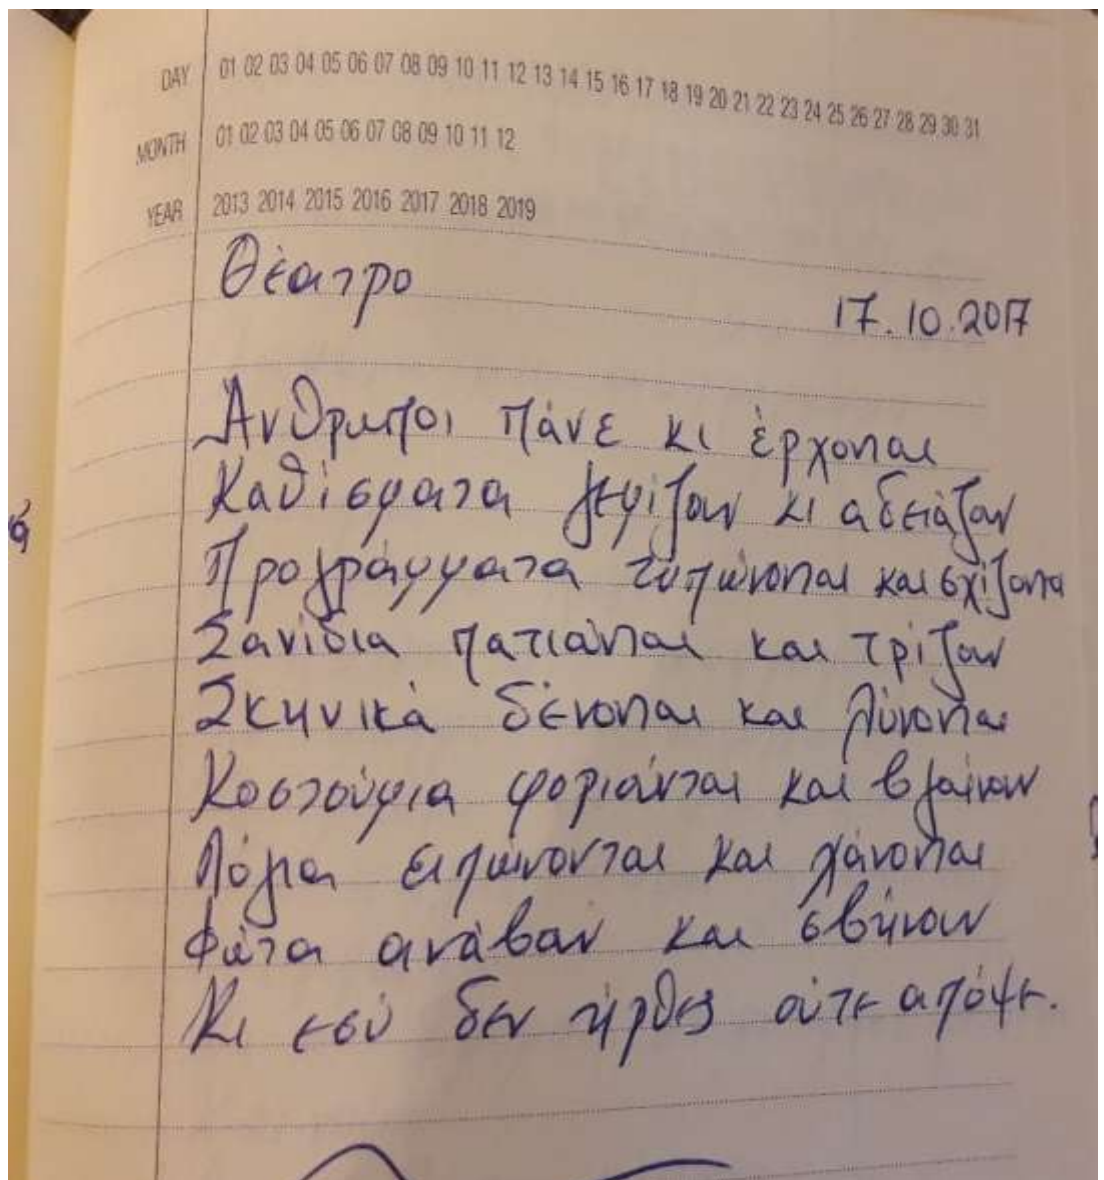 DAY 01 02 03 04 05 06 07 08 09 10 11 12 13 14 15 16 17 18 19 20 21 22 23 24 25 26 27 28 29 30 31
MONTH 01 02 03 04 05 06 07 08 09 10 11 12
YEAR 2013 2014 2015 2016 2017 2018 2019
Θέατρο
17.10.2017
Άνθρωποι πάνε κι έρχονται
Καθίσματα γεμίζουν κι αδειάζουν
Προγράμματα τυπώνονται και σχίζονται
Σανίδια πατιούνται και τρίζουν
Σκηνικά δένονται και λύνονται
Κοστούμια φοριούνται και βγαίνουν
Λόγια ειπώνονται και χάνονται
Φώτα ανάβουν και σβήνουν
Κι εσύ δεν ήρθες ούτε απόψε.